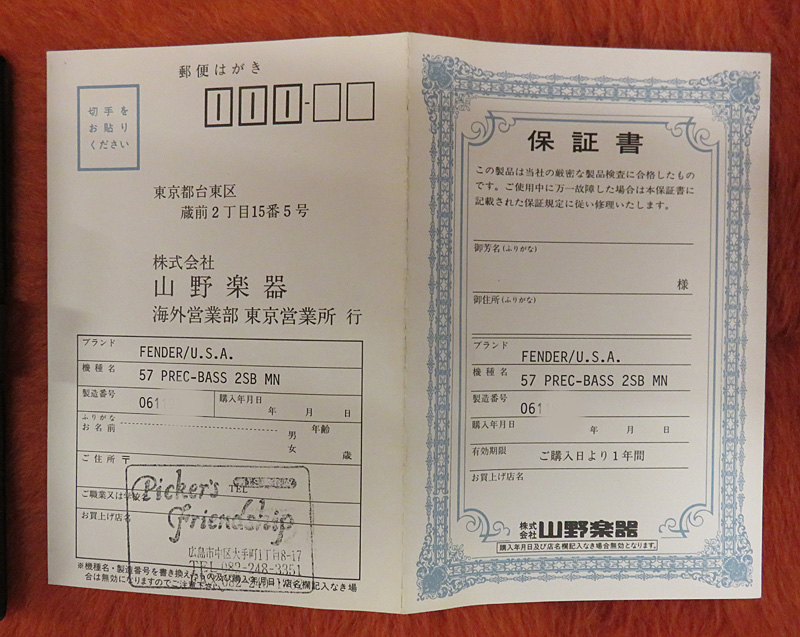 郵便はがき
切手を
お貼り
ください
111-
東京都台東区
蔵前2丁目15番5号
株式会社
山野楽器
海外営業部 東京営業所 行
ブランド
FENDER/U.S.A.
機種名
57 PREC-BASS 2SB MN
製造番号
061
購入年月日
年 月 日
ふりがな
お名前
男
女
年齢
歳
ご住所 〒
TEL
ご職業又は学校名
お買上げ店名
Picker's
friendship
広島市中区大手町1丁目8-17
TEL 082-248-3351
※機種名・製造番号を書き換えたもの及び購入年月日・店名欄記入なき場
合は無効になりますのでご注意下さい。
保証書
この製品は当社の厳密な製品検査に合格したもの
です。ご使用中に万一故障した場合は本保証書に
記載された保証規定に従い修理いたします。
御芳名(ふりがな)
様
御住所(ふりがな)
ブランド
FENDER/U.S.A.
機種名
57 PREC-BASS 2SB MN
製造番号
061
購入年月日
年 月 日
有効期限
ご購入日より1年間
お買上げ店名
株式会社山野楽器
購入年月日及び店名欄記入なき場合無効となります。